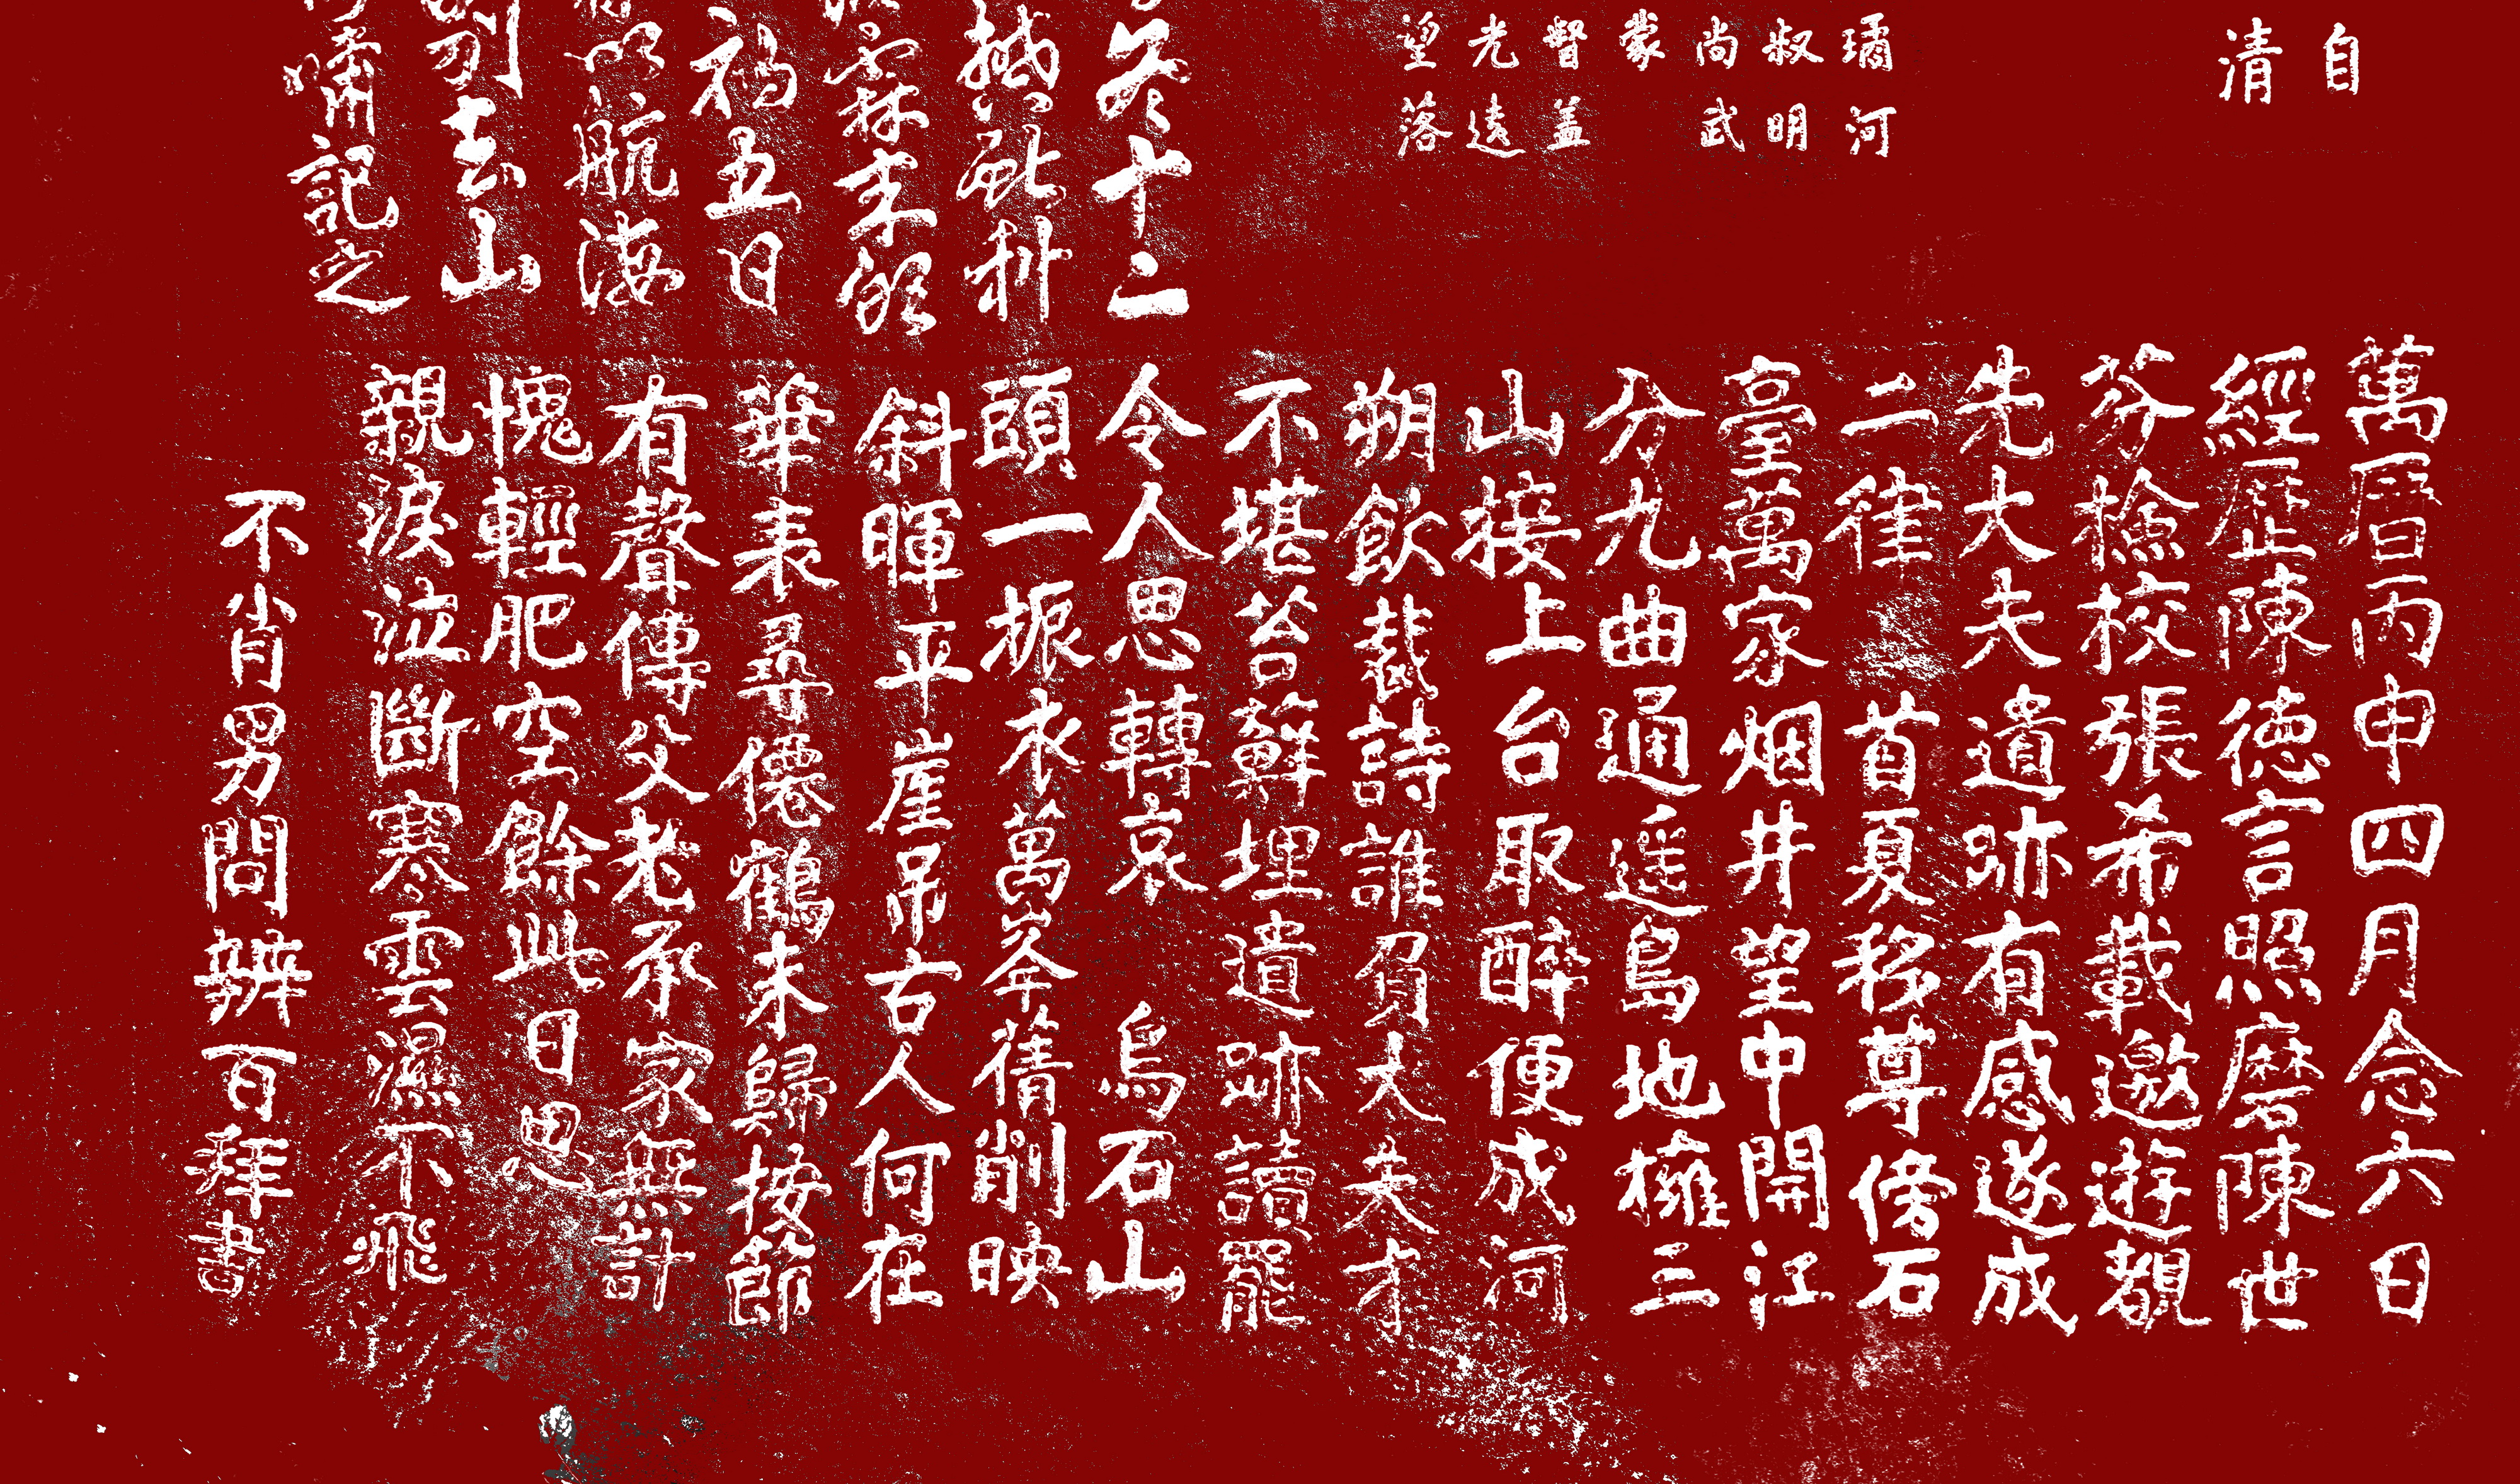 自
清
璚河
叔明
尚武
蒙
督盖
光遠
望落
冬十二
撼 科
霖率
禍五日
航海
別去山
嘯記之
萬曆丙申四月念六日
經歷陳德言照磨陳世
芬撿校張希載邀遊覩
先大夫遺跡有感遂成
二律 首夏移尊傍石
臺萬家烟井望中開江
分九曲通遥島地擁三
山接上台取醉便成河
朔飲裁詩誰負大夫才
不堪苔蘚埋遺跡讀罷
令人思轉哀 烏石山
頭一振衣萬峯蒨削映
斜暉平崖吊古人何在
華表尋僊鶴未歸按節
有聲傳父老承家無計
愧輕肥空餘此日思
親淚泣斷寒雲濕不飛
不肖男問辨百拜書